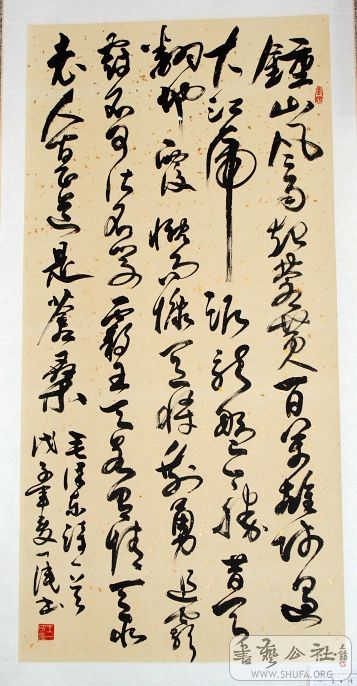 鍾山风雨起蒼黄百万雄师过
大江虎踞龙盘今胜昔天
翻地覆慨而慷宜将剩勇追穷
寇不可沽名学霸王天若有情天亦
老人间正道是蒼桑
毛泽东诗一首
戊子年夏一书
書藝公社
WWW.SHUFA.ORG